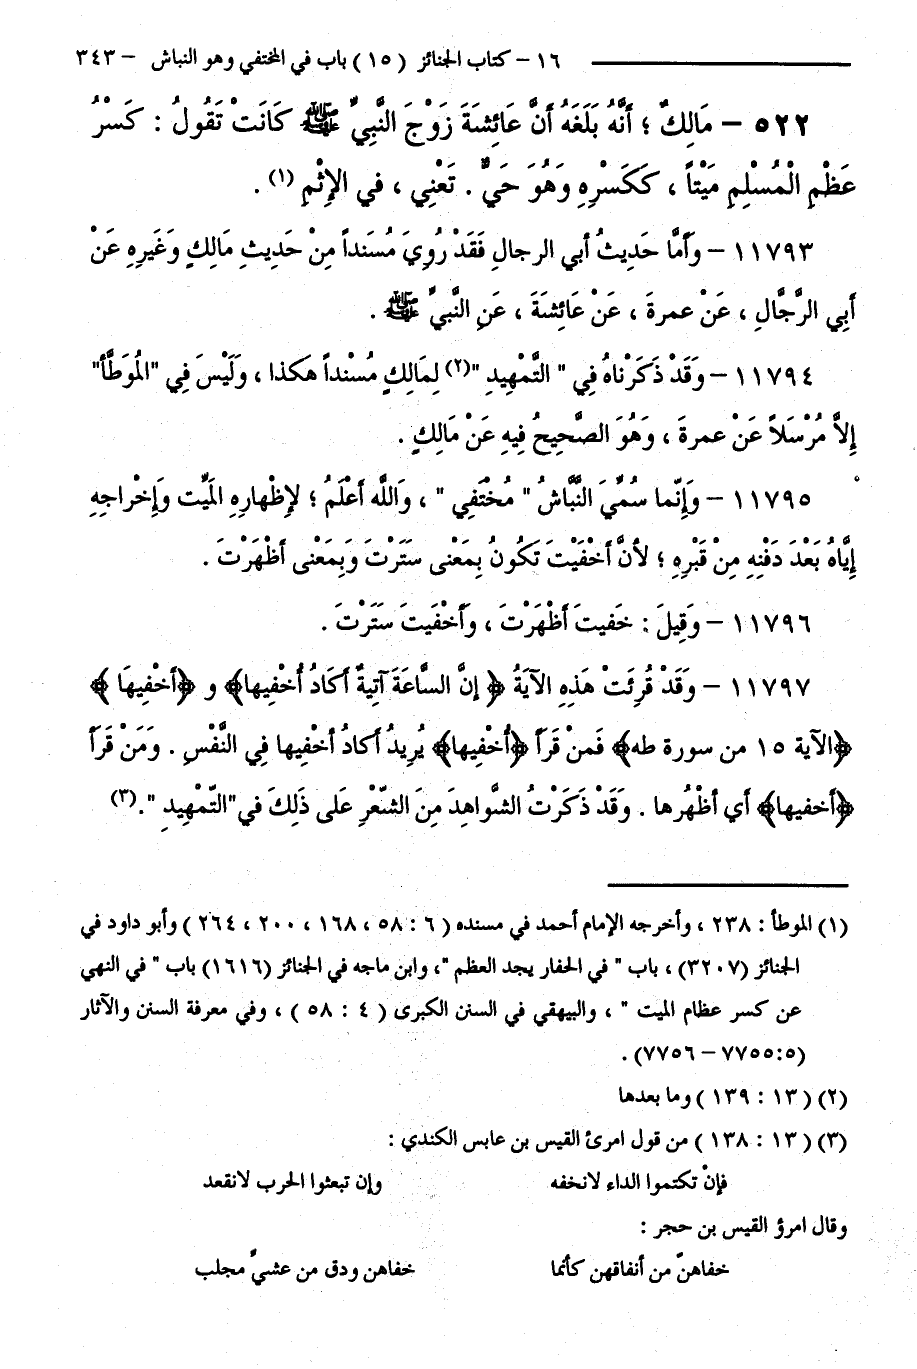 ١٦ – كتاب الجنائز ( ١٥ ) باب في المختفي وهو النباش – ٣٤٣
٥٢٢ – مَالِكٌ ؛ أَنَّهُ بَلَغَهُ أَنَّ عَائِشَةَ زَوْجَ النَّبِيِّ ﷺ كَانَتْ تَقُولُ : كَسْرُ
عَظْمِ الْمُسْلِمِ مَيْتاً ، كَكَسْرِهِ وَهُوَ حَيٌّ . تَعْنِي ، في الإِثْمِ (١) .
١١٧٩٣ – وَأَمَّا حَدِيثُ أبي الرجالِ فَقَدْ رُوِيَ مُسَنَداً مِنْ حَدِيثِ مَالِكٍ وَغَيرِهِ عَنْ
أَبِي الرَّجَّالِ ، عَنْ عمرةَ ، عَنْ عَائِشَةَ ، عَنِ النَّبِيِّ ﷺ .
١١٧٩٤ – وَقَدْ ذَكَرْنَاهُ فِي " التَّمْهِيدِ "(٢) لِمَالِكٍ مُسْنداً هكذا ، وَلَيْسَ فِي "الْمُوَطَّأ"
إِلاَّ مُرْسَلاً عَنْ عمرةَ ، وَهُوَ الصَّحِيحُ فِيهِ عَنْ مَالِكٍ .
١١٧٩٥ – وَإِنَّما سُمِّيَ النَّبَّاشُ " مُخْتَفِي " ، وَاللَّه أعْلَمُ ؛ لإِظْهارِهِ المَيِّت وَإِخْراجِهِ
إِيَّاهُ بَعْدَ دَفْنِهِ مِنْ قَبْرِهِ ؛ لأنَّ أخْفَيْتَ تَكُونُ بِمَعْنى سَتَرْتَ وَبِمَعْنى أظْهَرْتَ .
١١٧٩٦ – وَقِيلَ : خَفيتَ أظْهَرْتَ ، وَأخْفَيتَ سَتَرْتَ .
١١٧٩٧ – وَقَدْ قُرِئَتْ هَذِهِ الآيَةُ ﴿ إنَّ السَّاعَةَ آتِيةٌ أكَادُ أُخْفِيها﴾ و ﴿أَخفِيهَا ﴾
﴿الآية ١٥ من سورة طه﴾ فَمنْ قَرَأ ﴿أُخْفِيها﴾ يُرِيدُ أكادُ أخْفِيها فِي النَّفْسِ . وَمَنْ قَرَأ
﴿أَخفيها﴾ أي أظْهُرها . وَقَدْ ذَكَرْتُ الشَّواهِدَ مِنَ الشّعْرِ عَلى ذَلِكَ في"التّمْهِيدِ ".(٣)
(١) الموطأ : ٢٣٨ ، وأخرجه الإمام أحمد في مسنده ( ٦ : ٥٨ ، ١٦٨ ، ٢٠٠ ، ٢٦٤ ) وأبو داود في
الجنائز (٣٢٠٧) ، باب " في الحفار يجد العظم "، وابن ماجه في الجنائز (١٦١٦) باب " في النهي
عن كسر عظام الميت " ، والبيهقي في السنن الكبرى ( ٤ : ٥٨ ) ، وفي معرفة السنن والآثار
(٥:٧٧٥٥ – ٧٧٥٦) .
(٢) ( ١٣ : ١٣٩ ) وما بعدها
(٣) ( ١٣ : ١٣٨ ) من قول امرئ القيس بن عابس الكندي :
فإنْ تكتموا الداء لانخفه وإن تبعثوا الحرب لانقعد
وقال امرؤ القيس بن حجر :
خفاهنّ من أنفاقهن كأنما خفاهن ودق من عشيٍّ مجلب